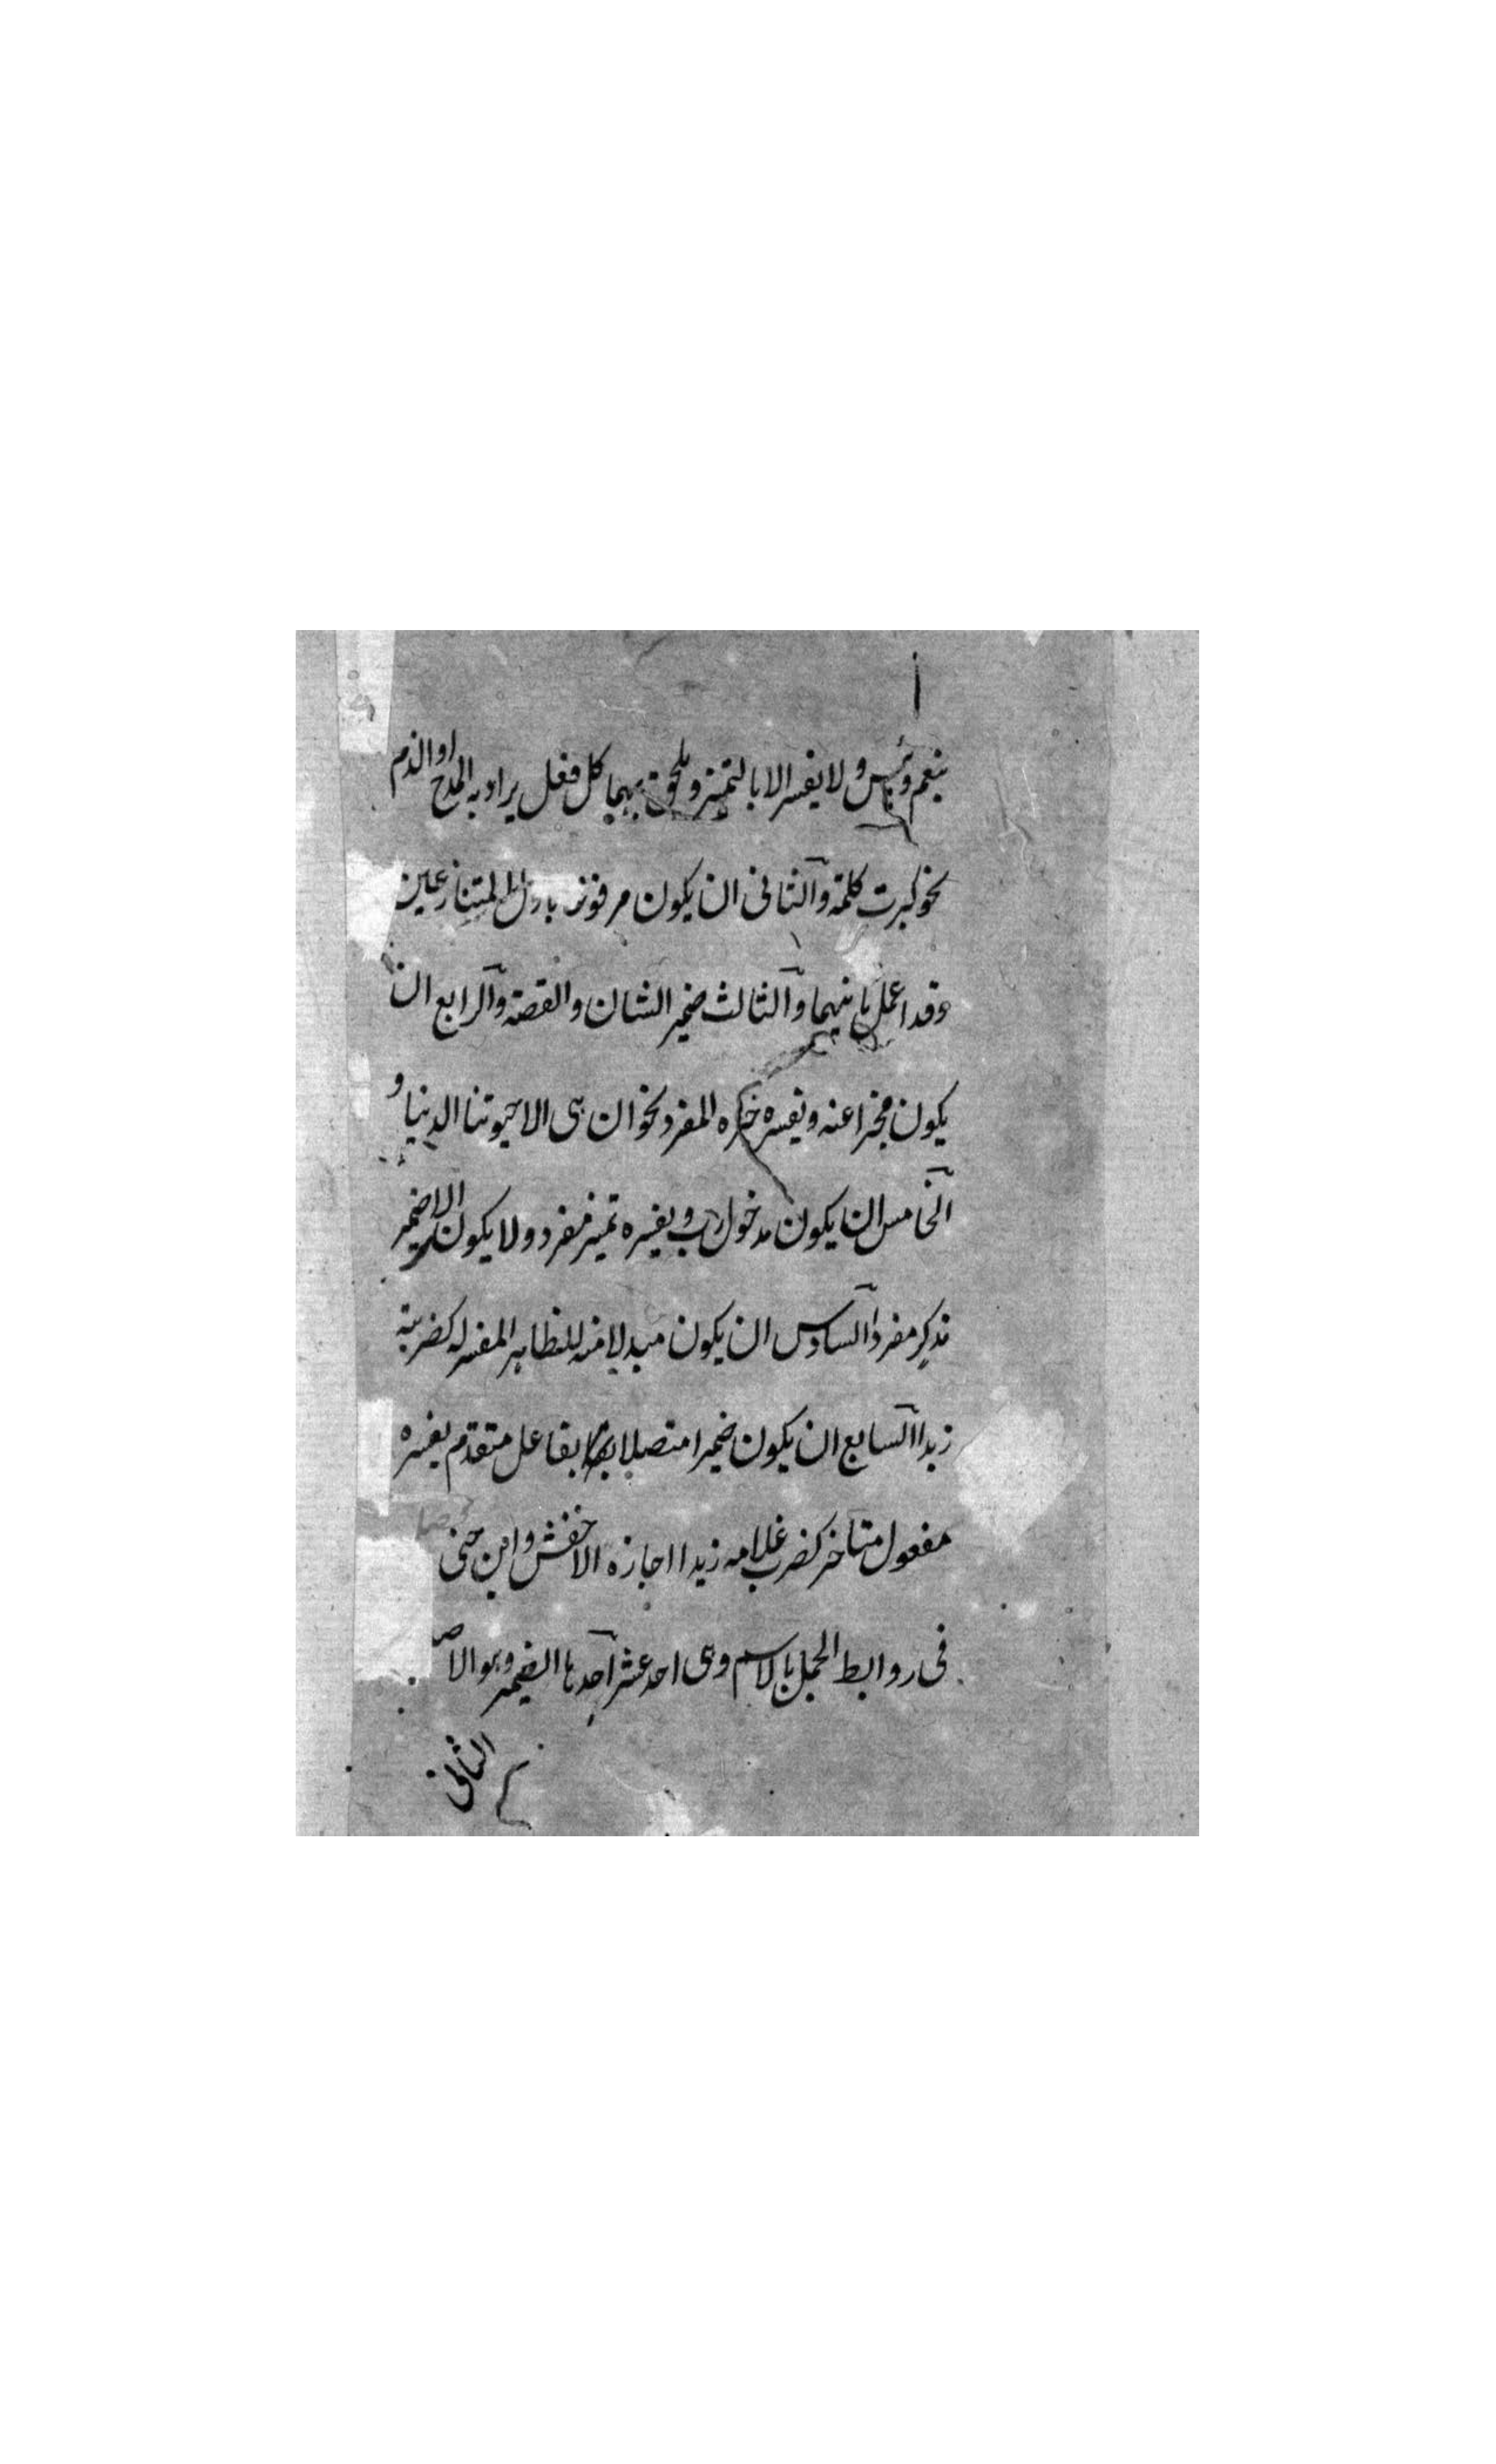 بنعم وبئس ولا يفسر الا بالتميز ويلحق بهما كل فعل يراد به المدح او الذم
نحو كبرت كلمة والثانى ان يكون مرفوعا باول المتنازعين
وقد اعمل ثانيهما والثالث ضمير الشان والقصة والرابع ان
يكون مخبرا عنه ويفسره خبره المفرد نحو ان هى الا حيوتنا الدنيا و
الخامس ان يكون مدخول رب ويفسره تميز مفرد ولا يكون الا ضمير
مذكر مفردا السادس ان يكون مبدلا منه للظاهر المفسر له كضربته
زيدا السابع ان يكون ضميرا متصلا بفاعل متقدم يفسره
مفعول متاخر كضرب غلامه زيدا اجازه الاخفش وابن جنى
فى روابط الجمل بالاسم وهى احد عشر احدها الضمير وهو الاصـ
الثانى